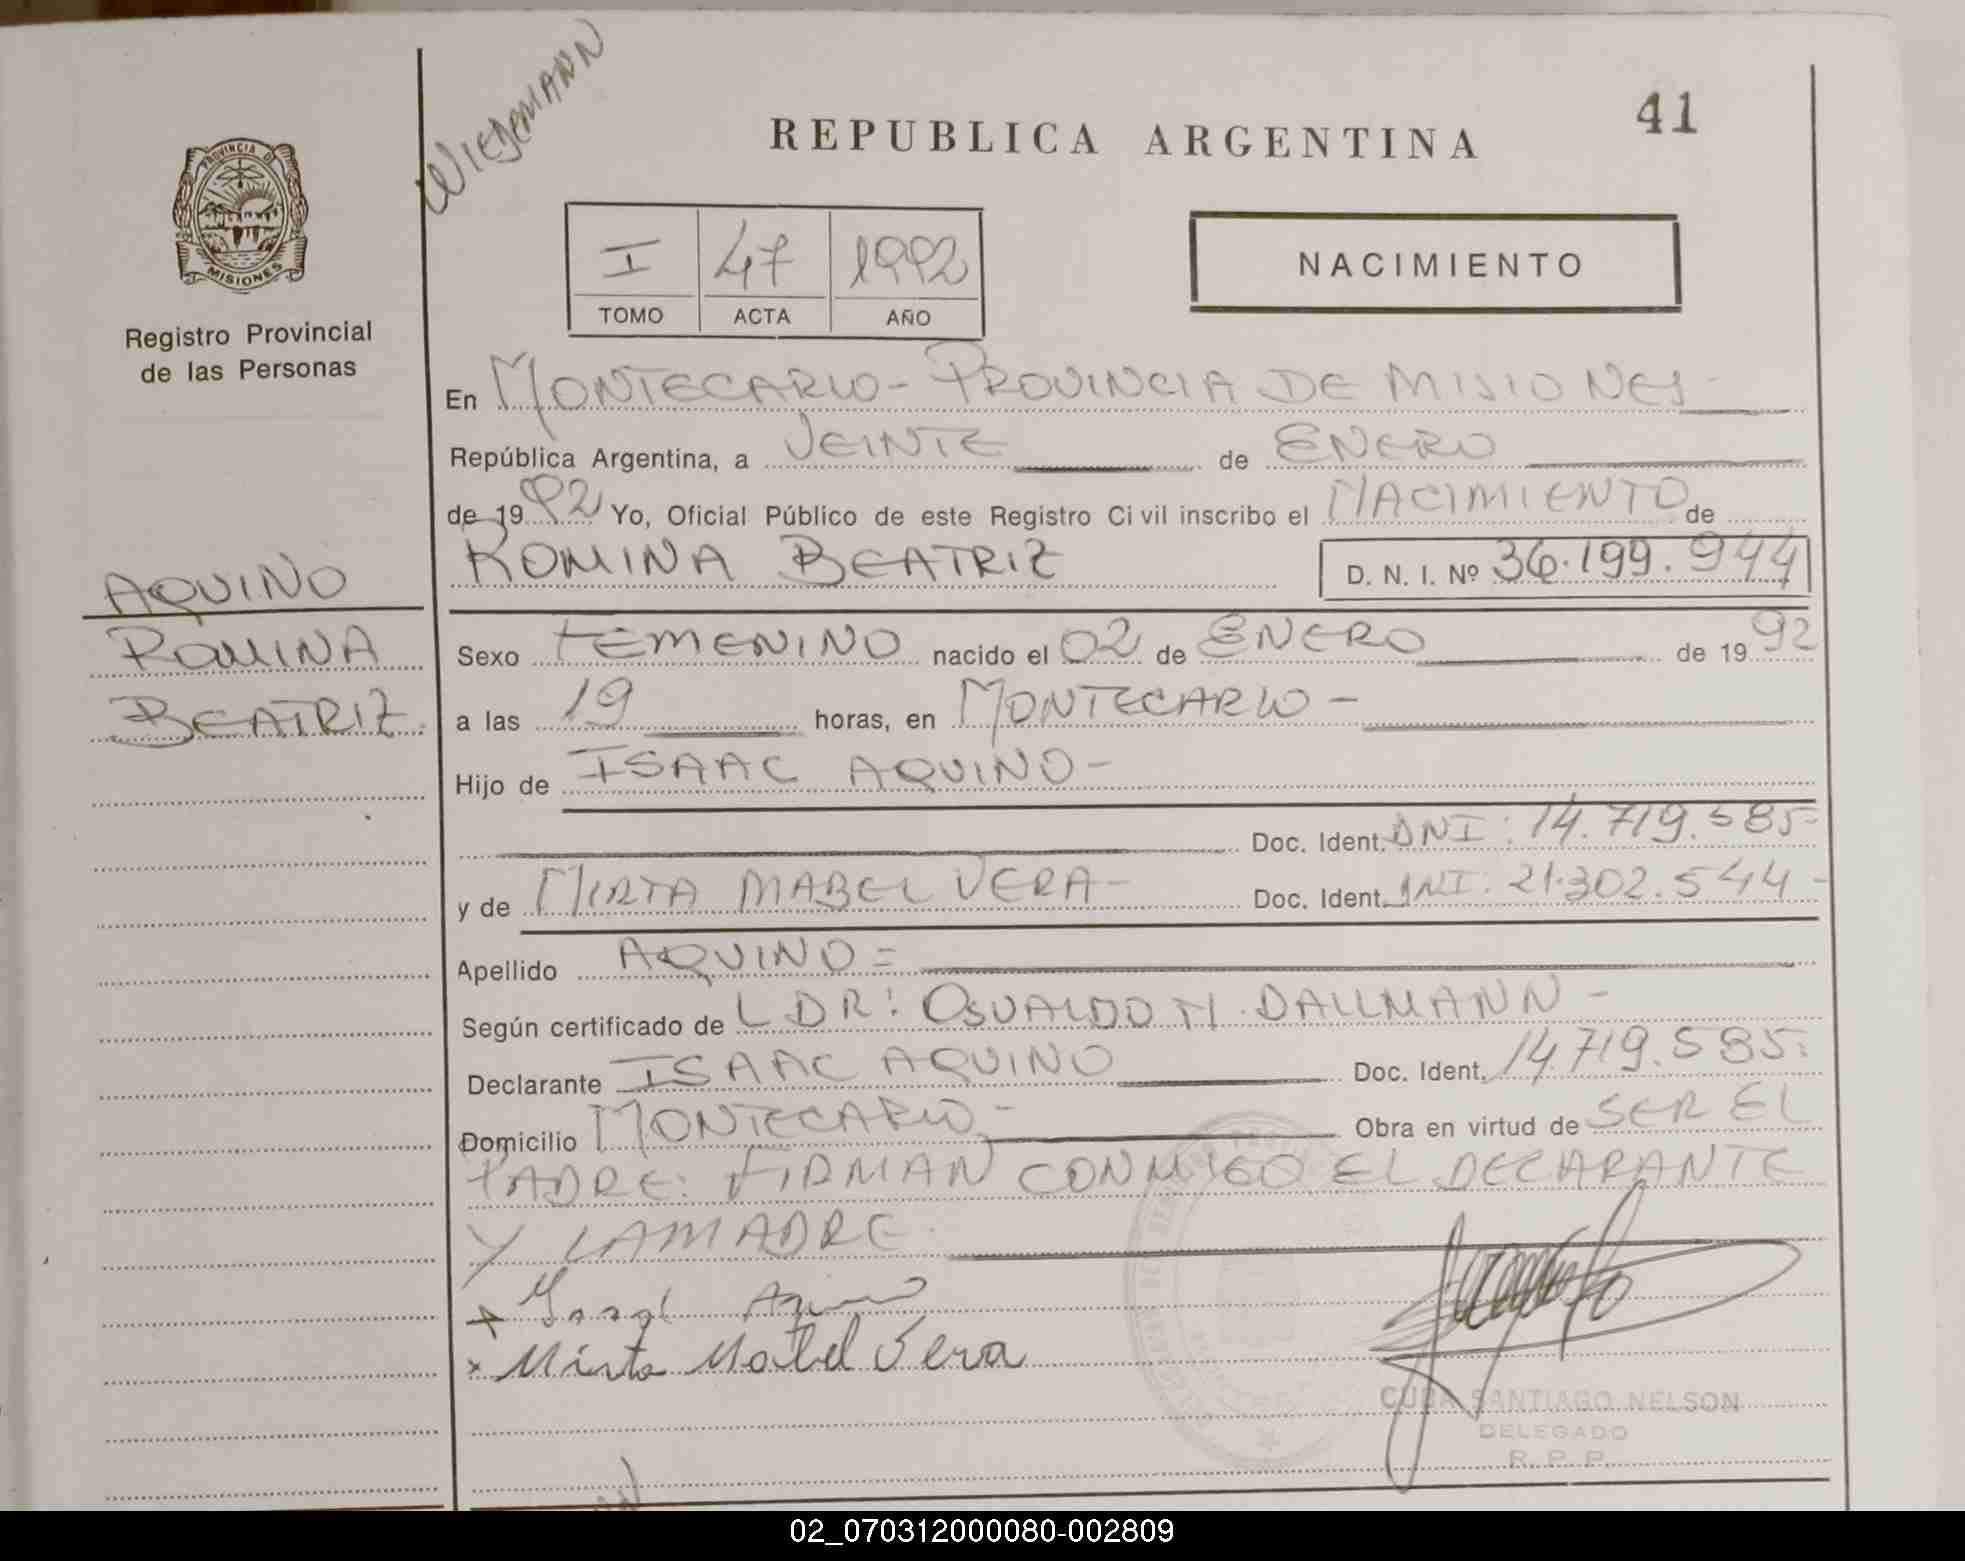 WIEDEMANN
41
REPUBLICA ARGENTINA
PROVINCIA DE
MISIONES
Registro Provincial
de las Personas
I 47 1992
TOMO ACTA AÑO
NACIMIENTO
En MONTECARLO - PROVINCIA DE MISIONES -
República Argentina, a VEINTE de ENERO
de 1992 Yo, Oficial Público de este Registro Civil inscribo el NACIMIENTO de
ROMINA BEATRIZ D. N. I. Nº 36.199.944
AQUINO
ROMINA
BEATRIZ.
Sexo FEMENINO nacido el 02 de ENERO de 1992
a las 19 horas, en MONTECARLO -
Hijo de ISAAC AQUINO -
Doc. Ident. DNI: 14.719.585-
y de MIRTA MABEL VERA - Doc. Ident. DNI: 21.302.544 -
Apellido AQUINO =
Según certificado de L DR: OSVALDO M. DALLMANN -
Declarante ISAAC AQUINO Doc. Ident. 14.719.585.
Domicilio MONTECARLO - Obra en virtud de SER EL
PADRE: FIRMAN CONMIGO EL DECLARANTE
Y LA MADRE.
Aquino
x Mirta Mabel Vera
CUBA SANTIAGO NELSON
DELEGADO
R. P. P.
02_070312000080-002809